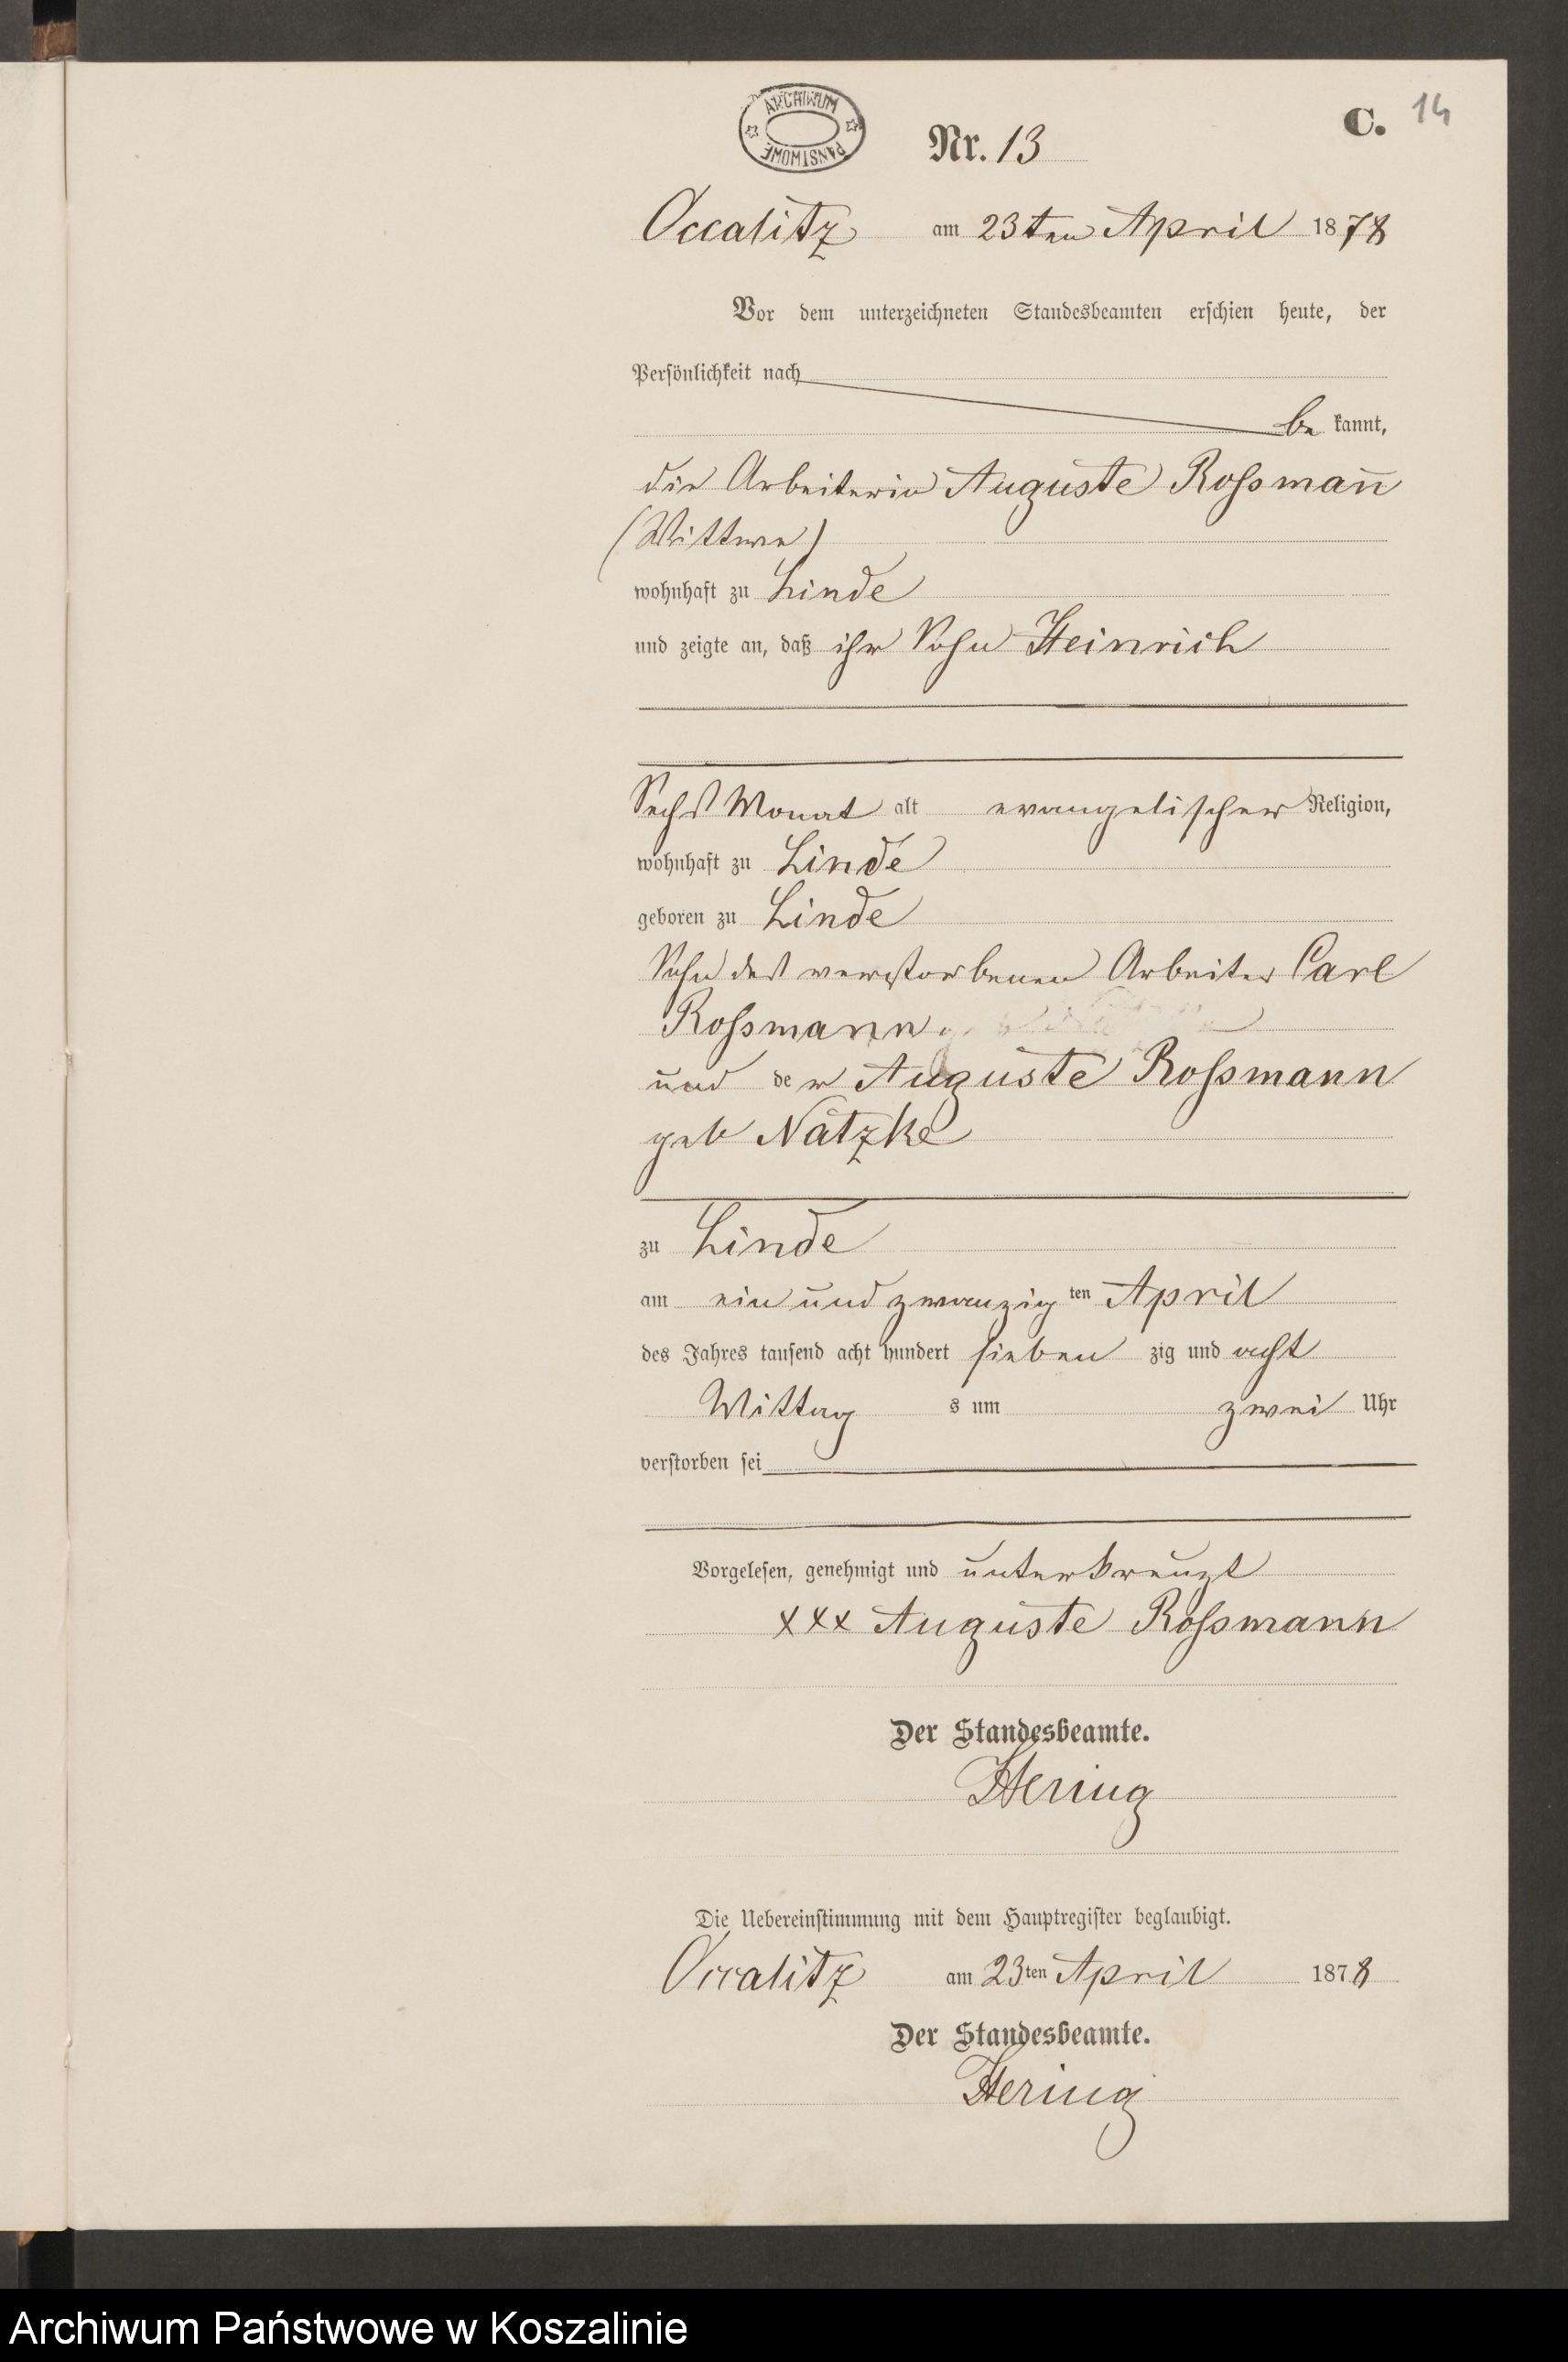 ARCHIWUM PAŃSTWOWE
C. 14
Nr. 13
Occalitz am 23ten April 1878
Vor dem unterzeichneten Standesbeamten erschien heute, der
Persönlichkeit nach
be kannt,
die Arbeiterin Auguste Roſsmañ
(Wittwe)
wohnhaft zu Linde
und zeigte an, daß ihr Sohn Heinrich
Sechs Monat alt evangelischer Religion,
wohnhaft zu Linde
geboren zu Linde
Sohn des verstorbenen Arbeiter Carl
Roſsmann
und der Auguste Roſsmann
geb Nätzke
zu Linde
am ein und zwanzig ten April
des Jahres tausend acht hundert sieben zig und acht
Mittag s um zwei Uhr
verstorben sei
Vorgelesen, genehmigt und unterkreuzt
xxx Auguste Roſsmann
Der Standesbeamte.
Hering
Die Uebereinstimmung mit dem Hauptregister beglaubigt.
Occalitz am 23ten April 1878
Der Standesbeamte.
Hering
Archiwum Państwowe w Koszalinie